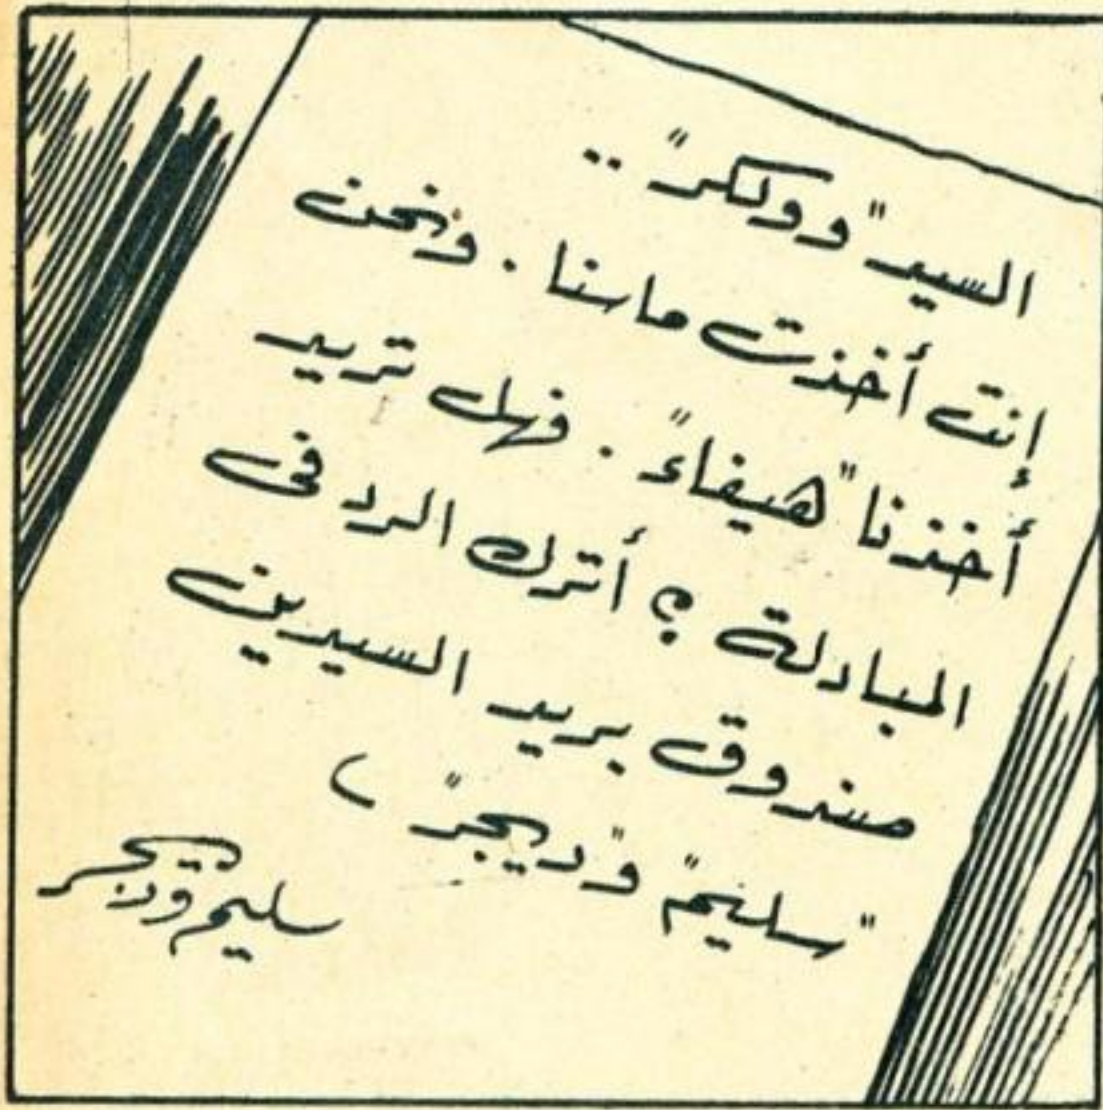 السيد "وولكر" ..
إنت أخذت ماسنا . ونحن
أخذنا "هيفاء" . فهل تريد
المبادلة ؟ أترك الرد في
صندوق بريد السيدين
"سليم" و"ديجر" )
سليم وديجر